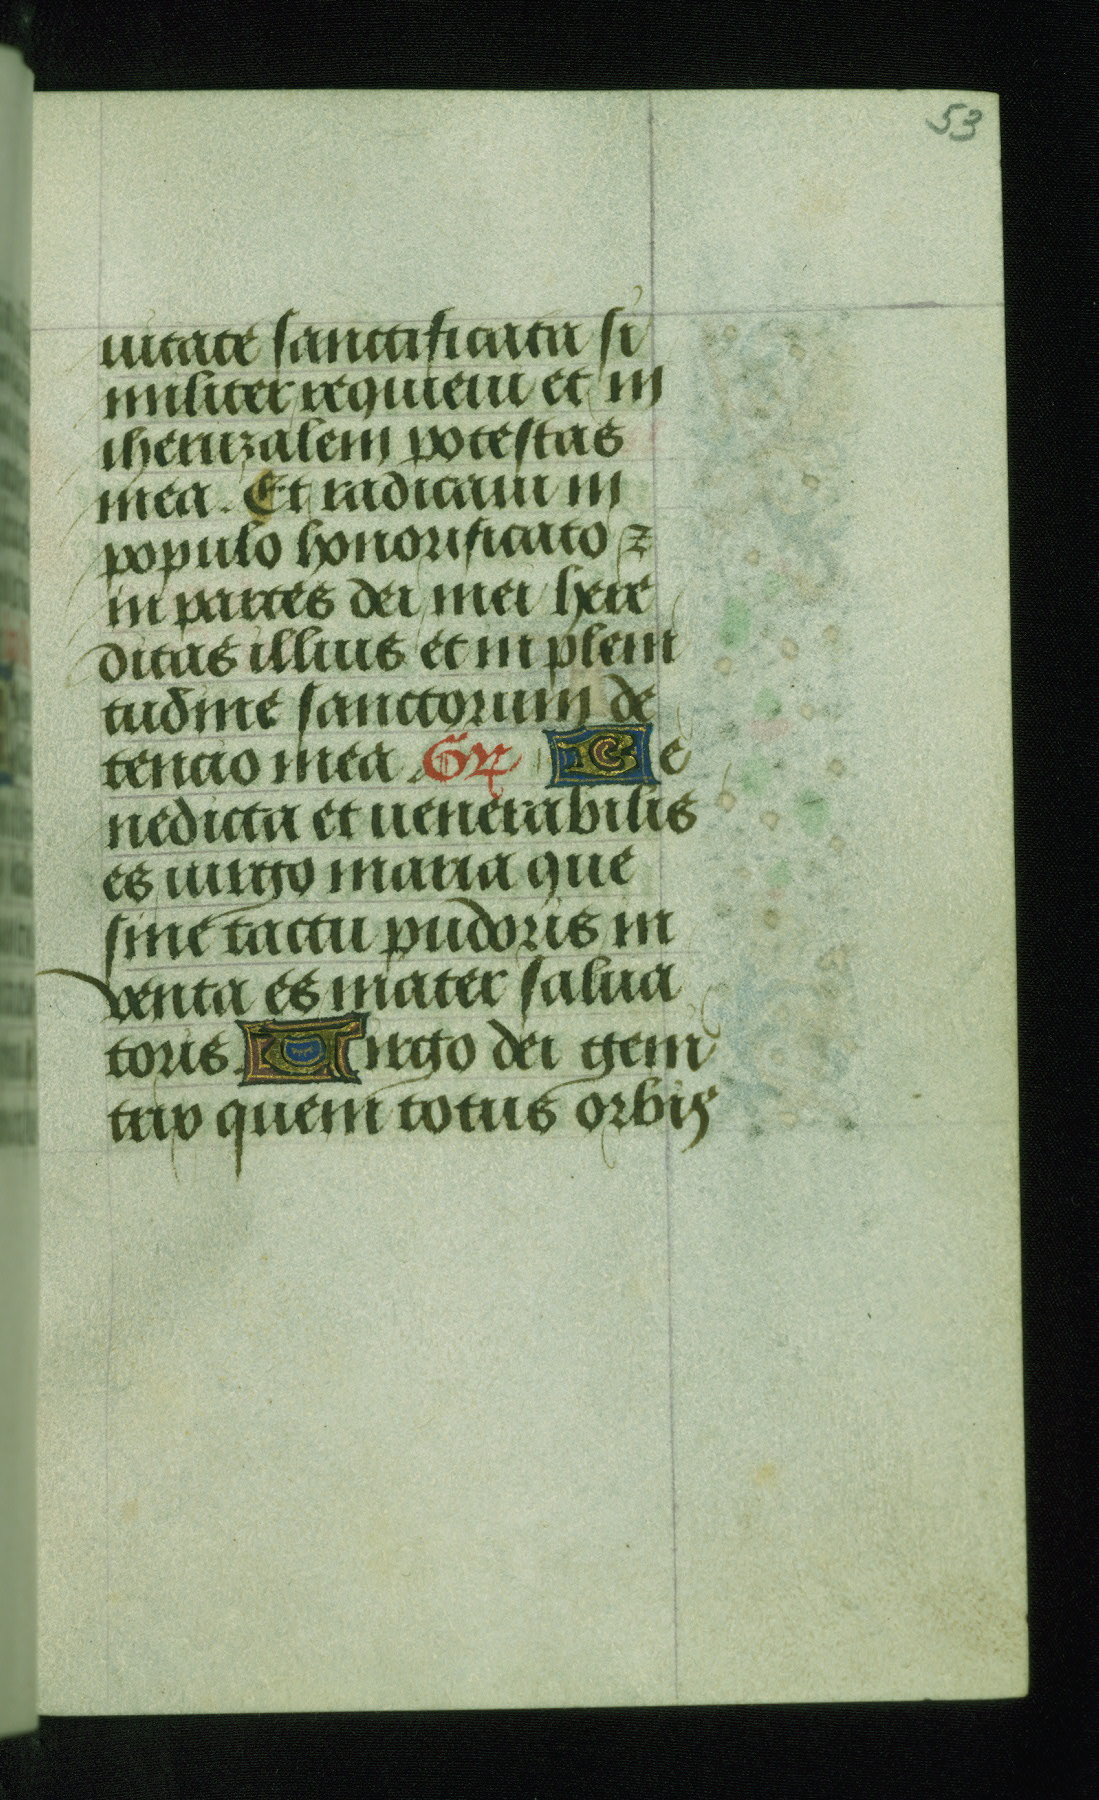 53
uitate sanctificata si
militer requieui et in
iheruzalem potestas
mea. Et radicaui in
populo honorificato z
in partes dei mei here
ditas illius et in pleni
tudine sanctorum de
tencio mea. Gr Be
nedicta et uenerabilis
es uirgo maria que
sine tactu pudoris in
venta es mater salua
toris. Uirgo dei geni
trix quem totus orbis